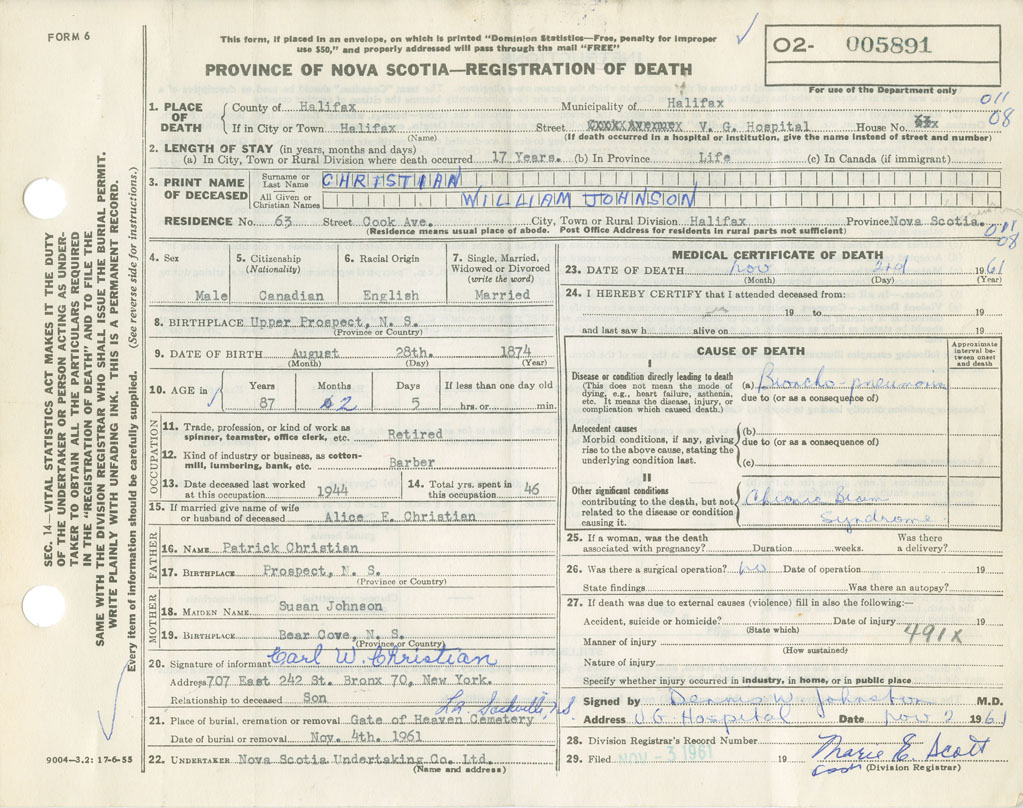 FORM 6
This form, if placed in an envelope, on which is printed "Dominion Statistics—Free, penalty for improper
use $50," and properly addressed will pass through the mail "FREE"
PROVINCE OF NOVA SCOTIA—REGISTRATION OF DEATH
O2- 005891
For use of the Department only
011
08
1. PLACE OF DEATH
County of Halifax Municipality of Halifax
If in City or Town Halifax Street Cook Avenue V. G. Hospital House No. 63
(Name) (If death occurred in a hospital or institution, give the name instead of street and number)
2. LENGTH OF STAY (in years, months and days)
(a) In City, Town or Rural Division where death occurred 17 Years. (b) In Province Life (c) In Canada (if immigrant)
3. PRINT NAME OF DECEASED
Surname or Last Name CHRISTIAN
All Given or Christian Names WILLIAM JOHNSON
RESIDENCE No. 63 Street Cook Ave. City, Town or Rural Division Halifax Province Nova Scotia.
(Residence means usual place of abode. Post Office Address for residents in rural parts not sufficient)
011
08
4. Sex 5. Citizenship (Nationality) 6. Racial Origin 7. Single, Married, Widowed or Divorced (write the word)
Male Canadian English Married
8. BIRTHPLACE Upper Prospect, N. S.
(Province or Country)
9. DATE OF BIRTH August 28th. 1874
(Month) (Day) (Year)
10. AGE in Years Months Days If less than one day old
87 2 5 hrs. or min.
OCCUPATION
11. Trade, profession, or kind of work as
spinner, teamster, office clerk, etc. Retired
12. Kind of industry or business, as cotton-
mill, lumbering, bank, etc. Barber
13. Date deceased last worked
at this occupation 1944
14. Total yrs. spent in
this occupation 46
15. If married give name of wife
or husband of deceased Alice E. Christian
FATHER
16. NAME Patrick Christian
17. BIRTHPLACE Prospect, N. S.
(Province or Country)
MOTHER
18. MAIDEN NAME Susan Johnson
19. BIRTHPLACE Bear Cove, N. S.
(Province or Country)
20. Signature of informant Carl W. Christian
Address 707 East 242 St. Bronx 70, New York.
Relationship to deceased Son
Lr. Sackville, N.S.
21. Place of burial, cremation or removal Gate of Heaven Cemetery
Date of burial or removal Nov. 4th. 1961
22. UNDERTAKER Nova Scotia Undertaking Co. Ltd.
(Name and address)
9004—3.2: 17-6-55
MEDICAL CERTIFICATE OF DEATH
23. DATE OF DEATH Nov 2nd 1961
(Month) (Day) (Year)
24. I HEREBY CERTIFY that I attended deceased from:
19 to 19
and last saw h alive on 19
CAUSE OF DEATH
Approximate interval between onset and death
I
Disease or condition directly leading to death
(This does not mean the mode of
dying, e.g., heart failure, asthenia,
etc. It means the disease, injury, or
complication which caused death.)
(a) Broncho-pneumonia
due to (or as a consequence of)
Antecedent causes
Morbid conditions, if any, giving
rise to the above cause, stating the
underlying condition last.
(b)
due to (or as a consequence of)
(c)
II
Other significant conditions
contributing to the death, but not
related to the disease or condition
causing it.
Chronic Brain
Syndrome
25. If a woman, was the death Was there
associated with pregnancy? Duration weeks. a delivery?
26. Was there a surgical operation? No Date of operation 19
State findings Was there an autopsy?
27. If death was due to external causes (violence) fill in also the following:—
Accident, suicide or homicide? Date of injury 19
(State which)
491X
Manner of injury
(How sustained)
Nature of injury
Specify whether injury occurred in industry, in home, or in public place
Signed by Dennis W. Johnston M.D.
Address V.G. Hospital Date Nov 2 1961
28. Division Registrar's Record Number
29. Filed NOV - 3 1961 19 Marie E. Scott
(Division Registrar)
SEC. 14—VITAL STATISTICS ACT MAKES IT THE DUTY
OF THE UNDERTAKER OR PERSON ACTING AS UNDER-
TAKER TO OBTAIN ALL THE PARTICULARS REQUIRED
IN THE "REGISTRATION OF DEATH" AND TO FILE THE
SAME WITH THE DIVISION REGISTRAR WHO SHALL ISSUE THE BURIAL PERMIT.
WRITE PLAINLY WITH UNFADING INK. THIS IS A PERMANENT RECORD.
Every item of information should be carefully supplied. (See reverse side for instructions.)